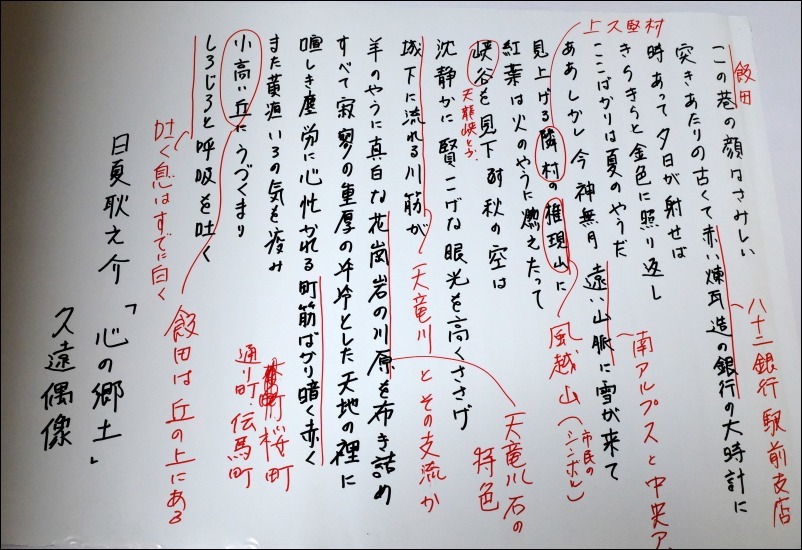 飯田
この巷の顔はさみしい
八十二銀行 駅前支店
突きあたりの古くて赤い煉瓦造の銀行の大時計に
時あって夕日が射せば
きらきらと金色に照り返し
ここばかりは夏のやうだ
南アルプスと中央ア
ああしかし今 神無月 遠い山脈に雪が来て
上久堅村
見上げる隣村の推現山に
風越山(市民のシンボル)
紅葉は火のやうに燃えたって
峡谷を見下す秋の空は
天龍峡とか
沈静かに賢こげな眼光を高くささげ
城下に流れる川筋が
天竜川とその支流か
羊のやうに真白な花崗岩の川原を布き詰め
天竜川石の
特色
すべて寂寥の重厚の冷冷とした天地の裡に
喧しき塵労に心忙かれる町筋ばかり暗く赤く
町 桜町
通り町・伝馬町
また黄疸いろの気を疫み
小高い丘にうづくまり
飯田は丘の上にある
しろじろと呼吸を吐く
吐く息はすでに白く
日夏耿之介「心の郷土」
久遠偶像